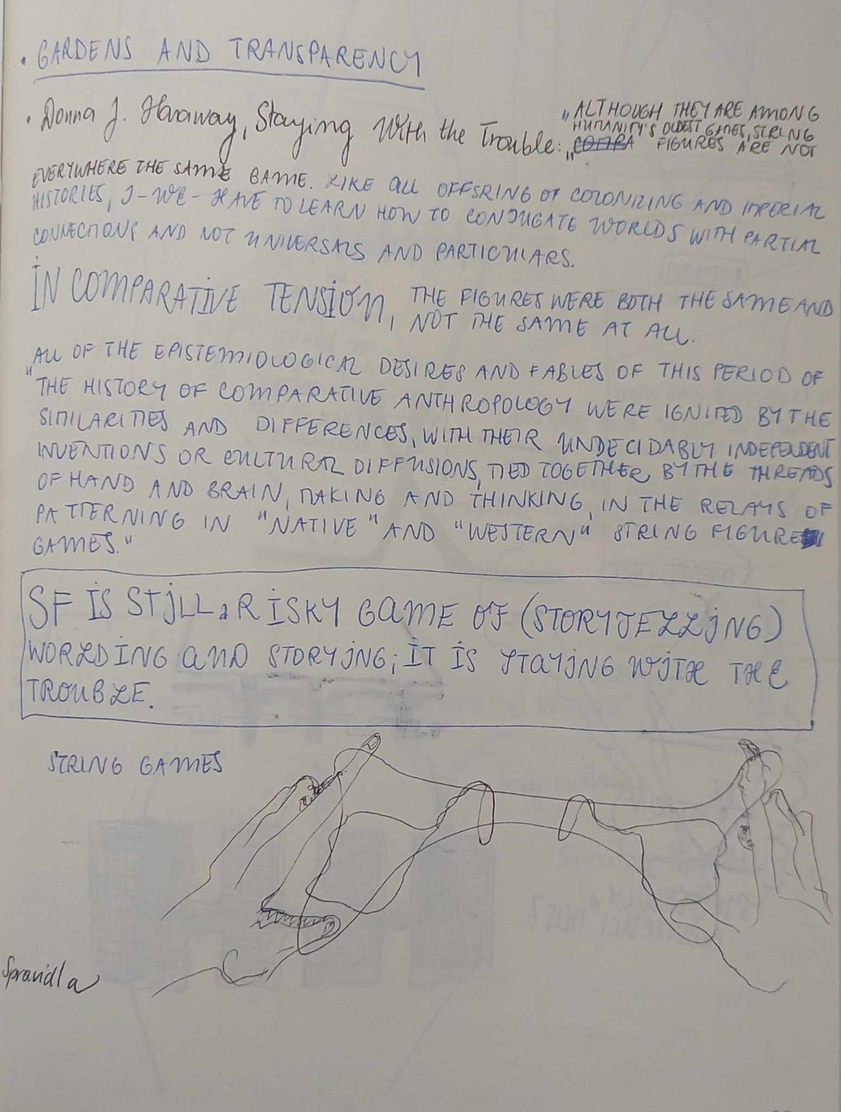 • GARDENS AND TRANSPARENCY
• Donna J. Haraway, Staying With the Trouble:
„ALTHOUGH THEY ARE AMONG
HUMANITY'S OLDEST GAMES, STRING
FIGURES ARE NOT
EVERYWHERE THE SAME GAME. LIKE ALL OFFSRING OF COLONIZING AND IMPERIAL
HISTORIES, I-WE-HAVE TO LEARN HOW TO CONJUGATE WORLDS WITH PARTIAL
CONNECTIONS AND NOT UNIVERSALS AND PARTICULARS.
IN COMPARATIVE TENSION, THE FIGURES WERE BOTH THE SAME AND
NOT THE SAME AT ALL.
„ALL OF THE EPISTEMIOLOGICAL DESIRES AND FABLES OF THIS PERIOD OF
THE HISTORY OF COMPARATIVE ANTHROPOLOGY WERE IGNITED BY THE
SIMILARITIES AND DIFFERENCES, WITH THEIR UNDECIDABLY INDEPENDENT
INVENTIONS OR CULTURAL DIFFUSIONS, TIED TOGETHER BY THE THREADS
OF HAND AND BRAIN, MAKING AND THINKING, IN THE RELAYS OF
PATTERNING IN "NATIVE" AND "WESTERN" STRING FIGURE
GAMES."
SF IS STILL a RISKY GAME OF (STORYTELLING)
WORLDING AND STORYING; IT IS STAYING WITH THE
TROUBLE.
STRING GAMES
Spravidla